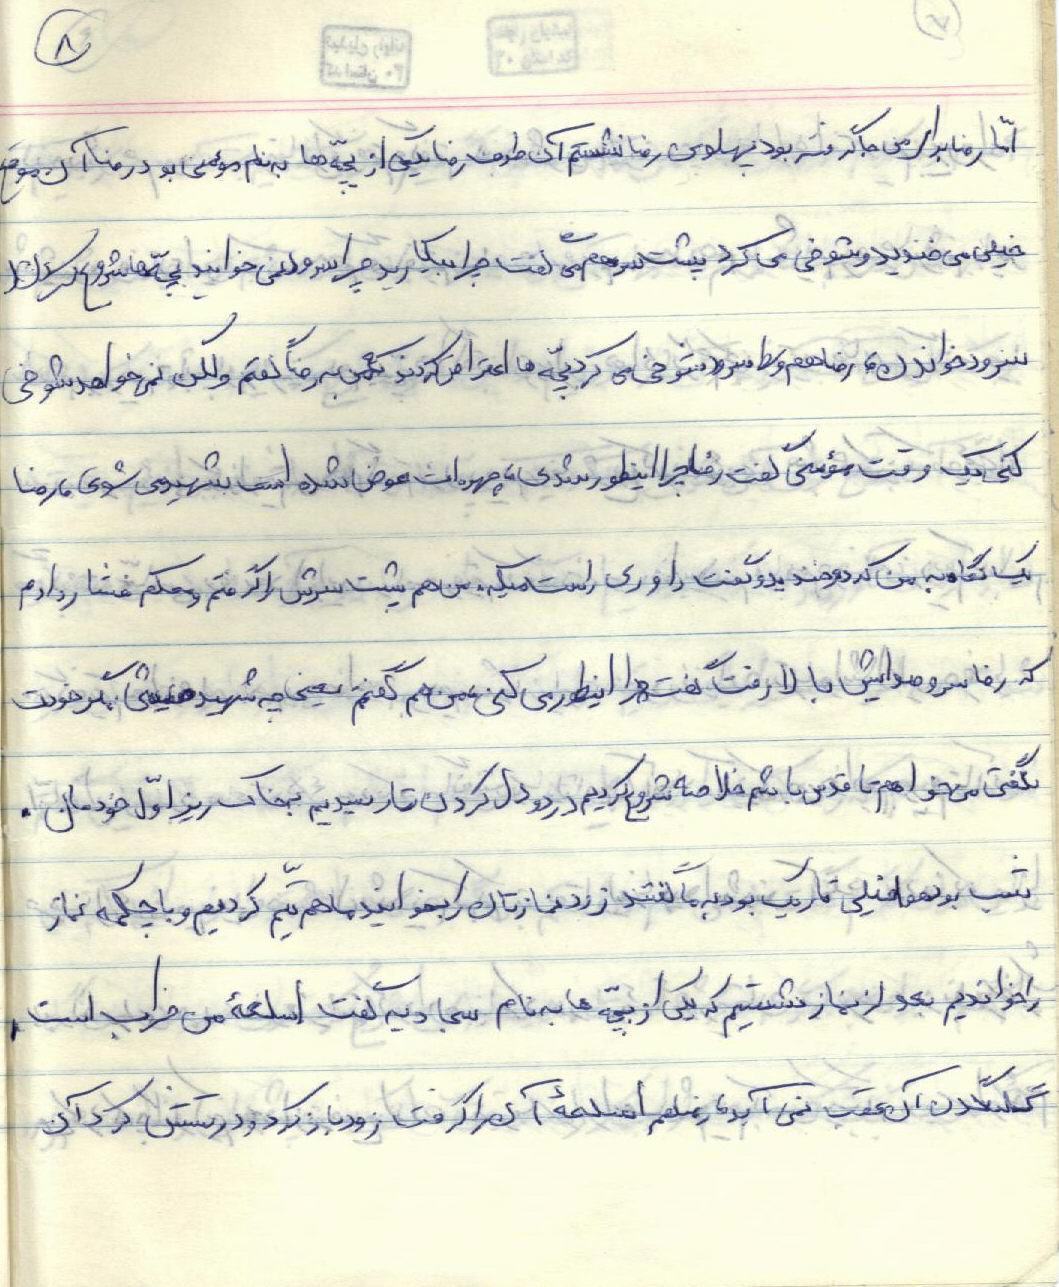 ۸
اما رضا برای من جا گرفته بود پهلوی رضا نشستم آن طرف رضا یکی از بچّه ها به نام مؤمنی بود رضا آن موقع
خیلی می خندید و شوخی می کرد پشت سر هم می گفت چرا بیکارید چرا سرود نمی خوانید بچّه ها شروع کردند
سرود خواندن رضا هم وسط سرود شوخی می کرد بچّه ها اعتراض کردند من به رضا گفتم ول کن نمی خواهد شوخی
کنی یک وقت مؤمنی گفت رضا چرا اینطور شدی چهره ات عوض شده است شهید می شوی رضا
یک نگاه به من کرد و خندید و گفت داوری راست میگه، من هم پشت سرش را گرفتم و محکم فشار دادم
که رضا سر و صدایش بالا رفت گفت چرا اینطور می کنی، من هم گفتم یعنی چه شهید میشی مگر خودت
نگفتی می خواهم تا قدس باشم خلاصه شروع کردیم درد و دل کردن تا رسیدیم به خاک ریز اوّل خودمان .
شب بود هوا خیلی تاریک بود به ما گفتند زود نمازتان را بخوانید ما هم تیمّم کردیم و با چکمه نماز
را خواندیم بعد از نماز نشستیم که یکی از بچّه ها به نام سجادیه گفت اسلحۀ من خراب است ,
گلنگدن آن عقب نمی آید اسلحۀ آن را گرفت زود باز کرد و درستش کرد آن